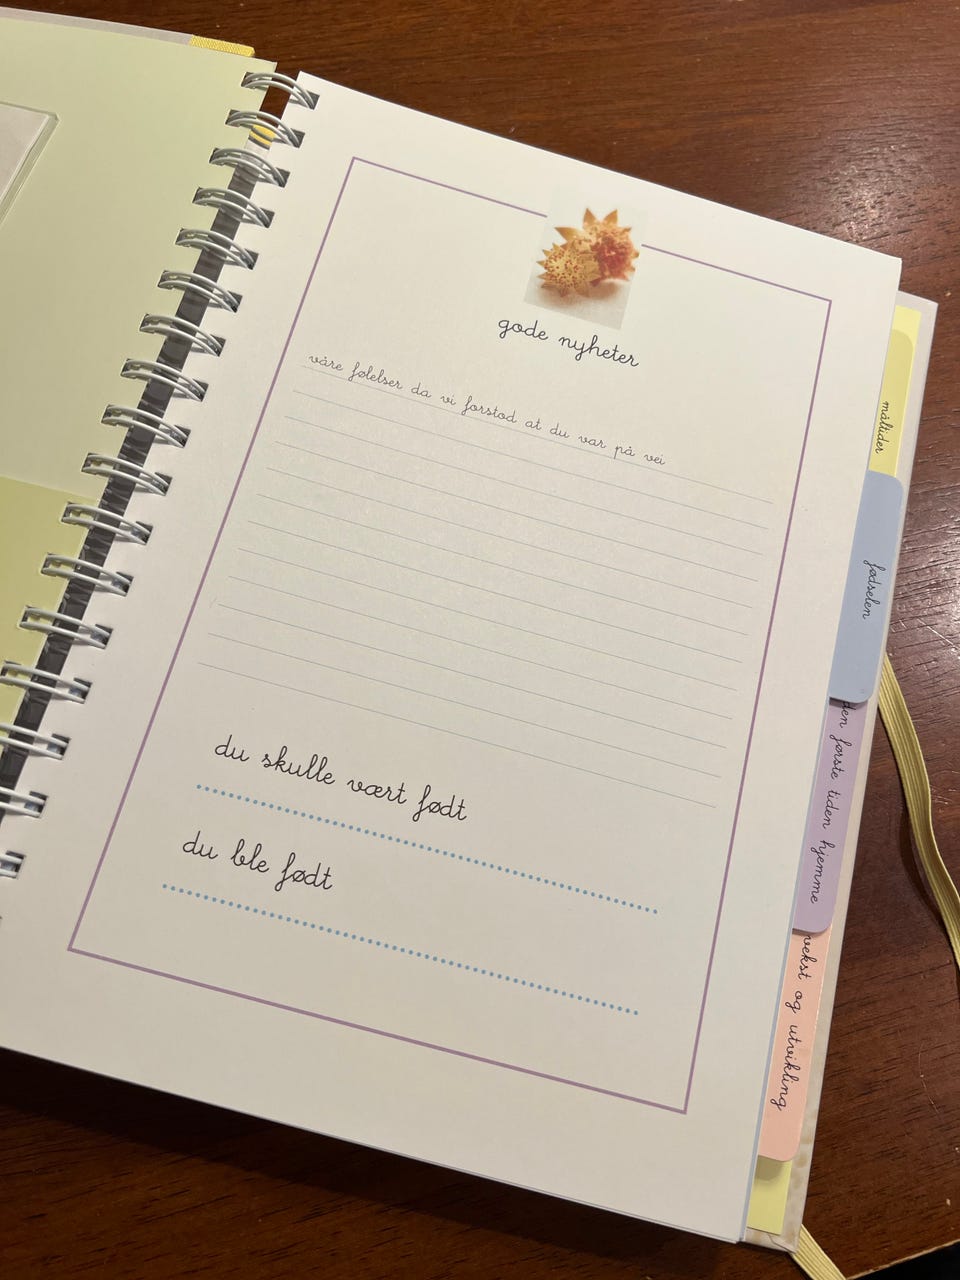 gode nyheter
våre følelser da vi forstod at du var på vei
du skulle vært født
du ble født
måltider
fødselen
den første tiden hjemme
vekst og utvikling